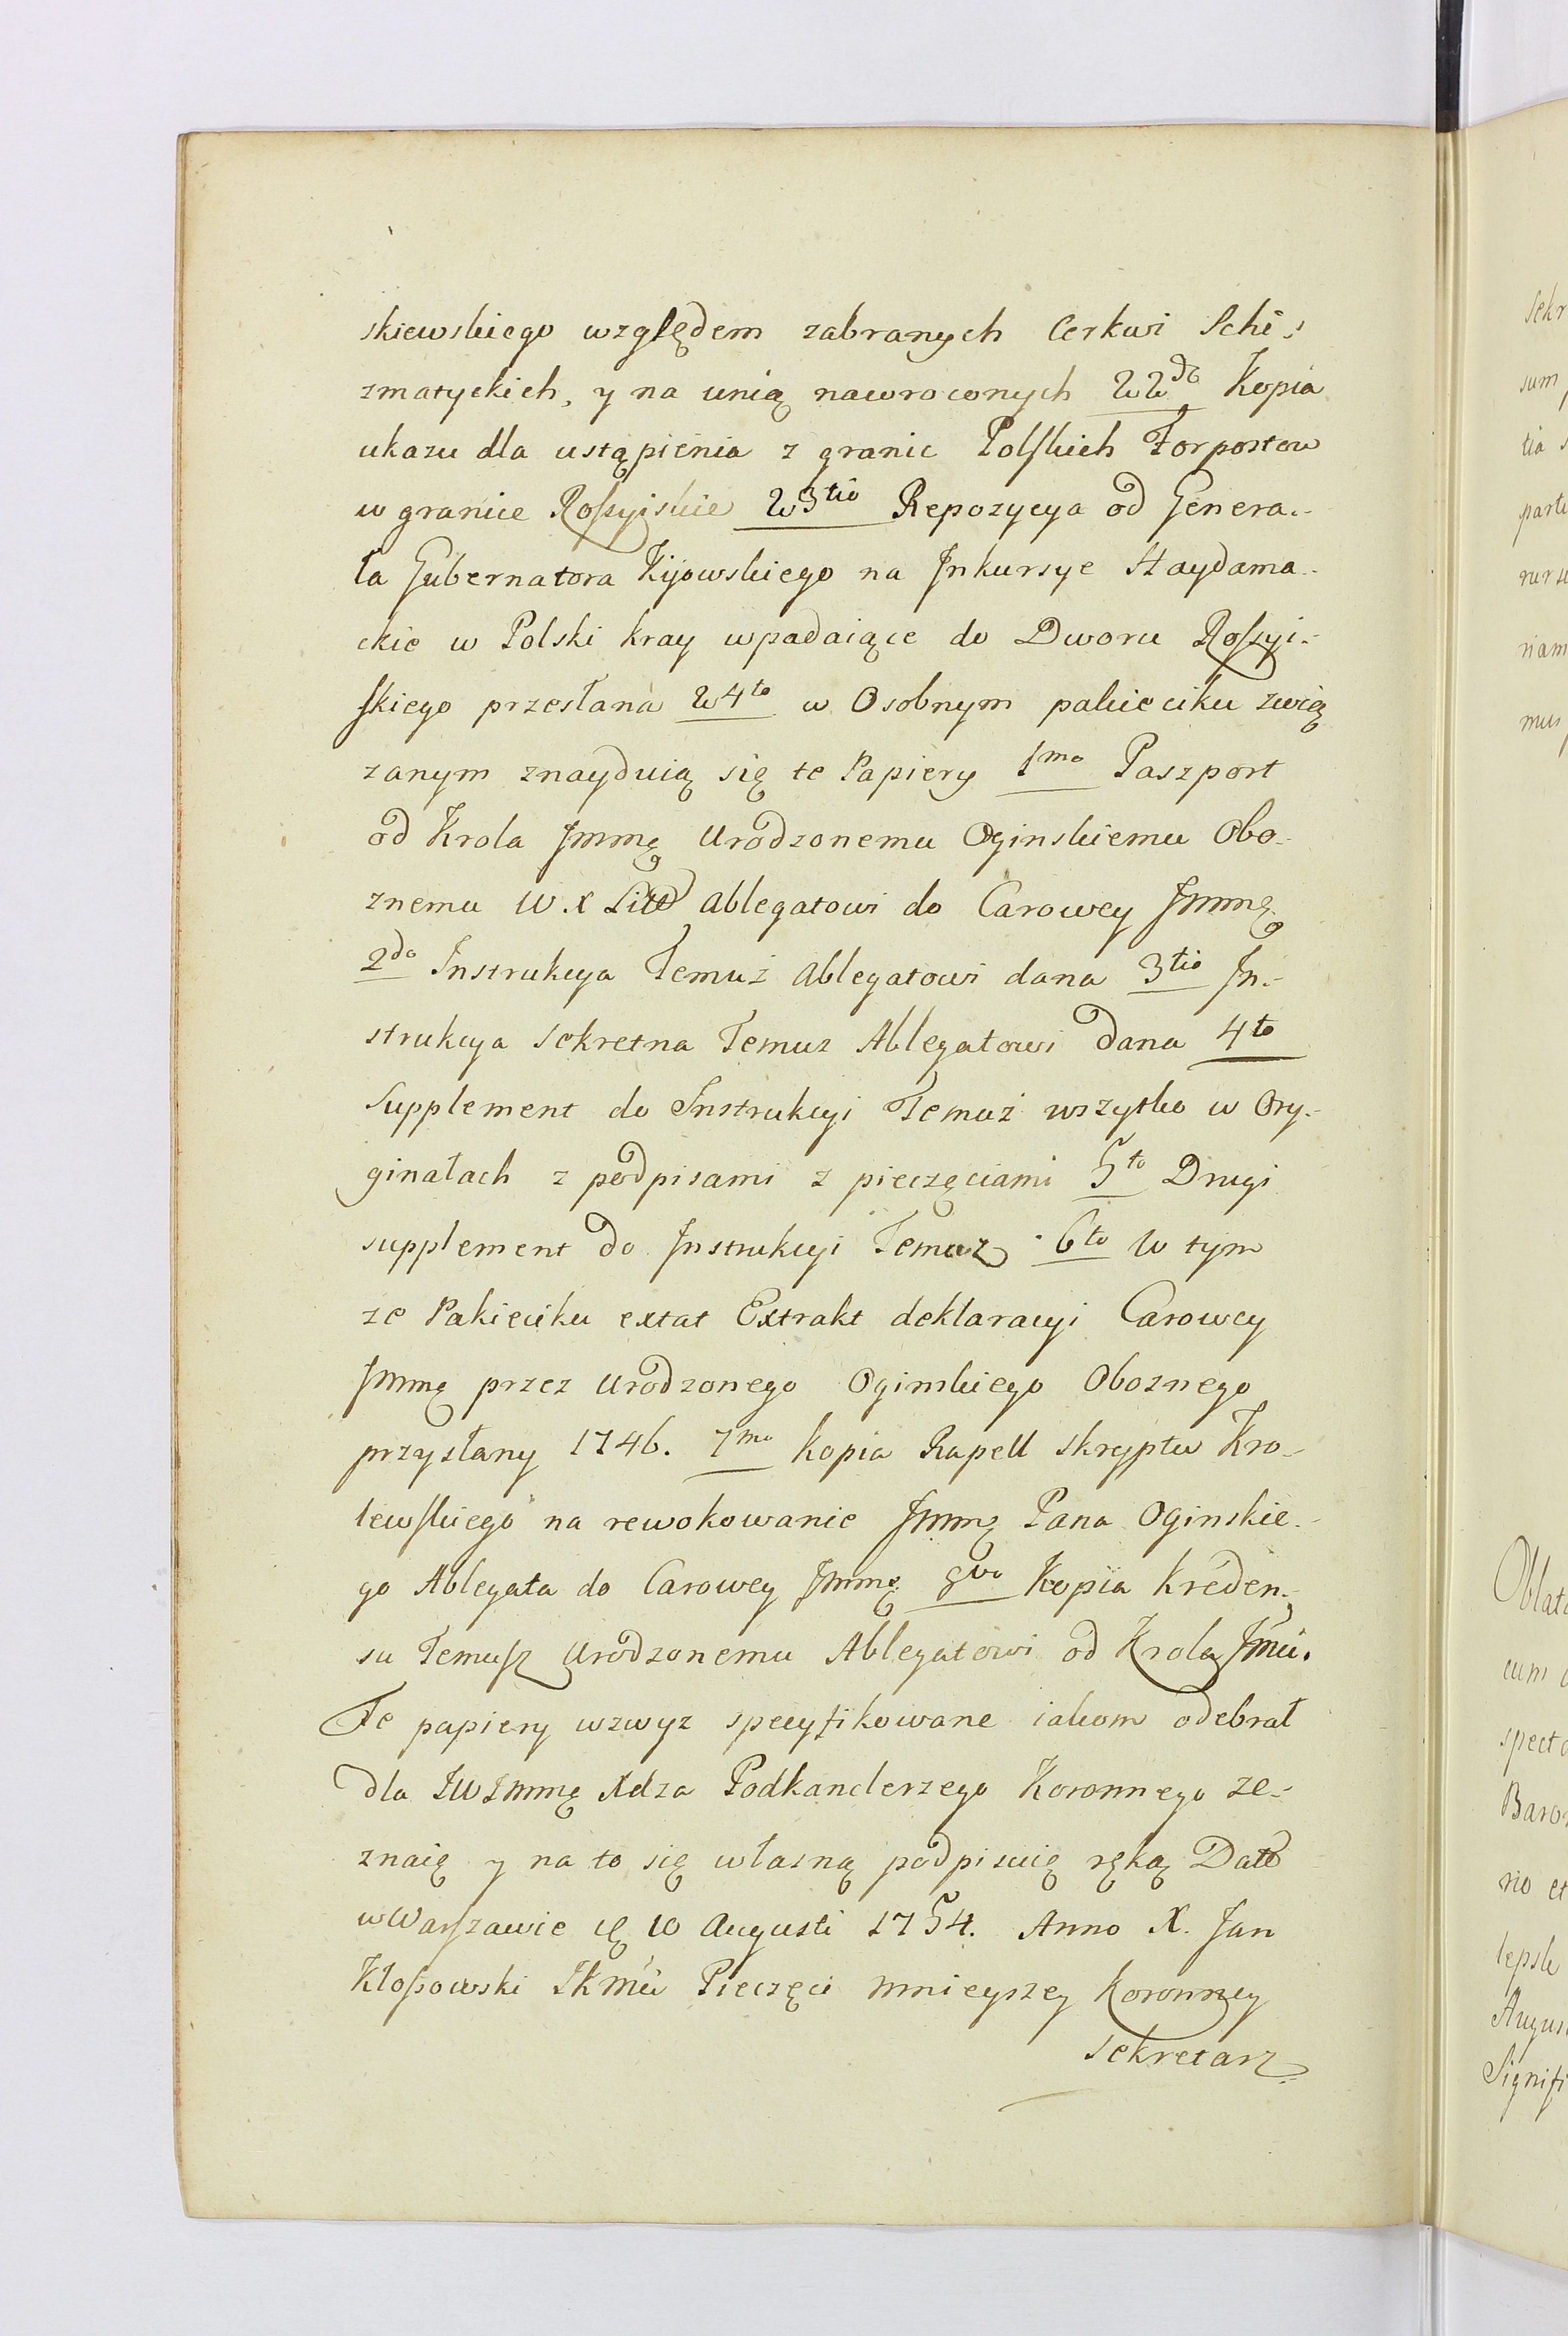 skiewskiego względem zabranych Cerkwi Schi-
zmatyckich, y na unią nawroconych W2do Kopia
ukazu dla ustąpienia z granic Polskich Forpostow
w granice Rossyiskie W3tio Repozycya od Genera-
ła Gubernatora Kijowskiego na Inkursye Haydama-
ckie w Polski kray wpadaiące do Dworu Rossyi-
skiego przesłana W4to w Osobnym pakieciku zwią
zanym znayduią się te Papiery 1mo Paszport
od Krola Jmmę Urodzonemu Oginskiemu Obo-
znemu W. X Litt Ablegatowi do Carowey Jmmę
2do Instrukcya Temuż Ablegatowi dana 3tio In-
strukcya Sekretna Temuz Ablegatowi dana 4to
Supplement do Instrukcyi Temuż wszytko w Ory-
ginałach z podpisami z pieczęciami 5to Drugi
supplement do Instrukcyi Temuz 6to W tym
ze Pakieciku extat Extrakt deklaracyi Carowey
Jmmę przez Urodzonego Oginskiego Oboznego
przysłany 1746. 7mo Kopia Rapell skryptu Kro-
lewskiego na rewokowanie Jmmę Pana Oginskie-
go Ablegata do Carowey Jmmę 8vo Kopia Kreden-
su Temusz Urodzonemu Ablegatowi od Krola Jmći.
Te papiery wzwyz specyfikowane iakom odebrał
dla JWJmmę Xdza Podkanclerzego Koronnego ze-
znaię y na to się własną podpisuię ręką Datt
w Warszawie 10 Augusti 1754. Anno X. Jan
Kłossowski JKMći Pieczęci mnieyszey Koronney
Sekretarz